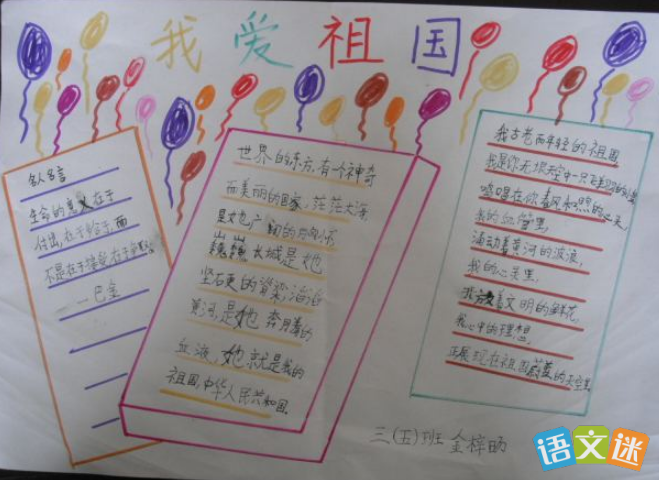 我爱祖国
名人名言
生命的意义在于
付出,在于给予,而
不是在于接受,在于
——巴金
世界的东方,有一个神奇
而美丽的国家,茫茫大海
是她广阔的
巍巍长城是她
坚硬的脊梁,滔滔
黄河,是她奔腾的
血液,她就是我的
祖国,中华人民共和国
我古老而年轻的祖国
我是你无垠天空中一只
唱在你春风和煦的
我的血管里,
涌动着黄河的波浪,
我的心灵里,
着文明的鲜花,
我心中的理想,
正展现在祖国蔚蓝的天空里
三(五)班 金梓旸
语文迷